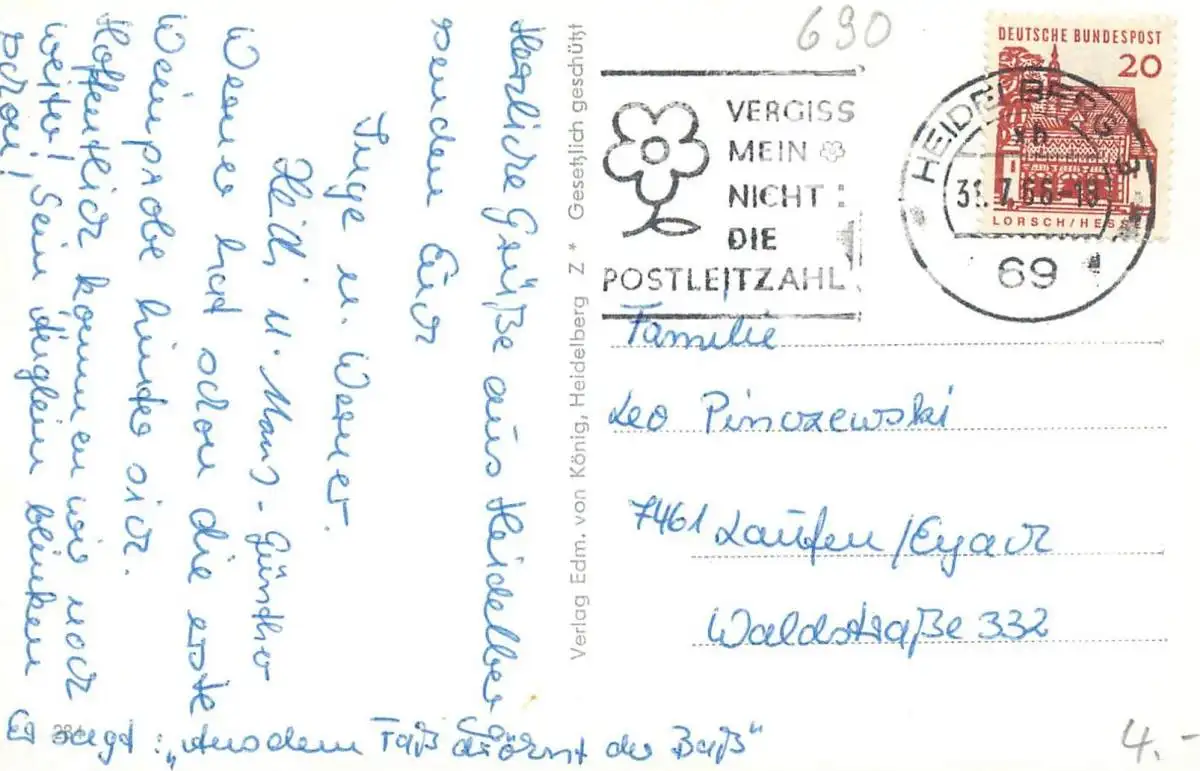 690
DEUTSCHE BUNDESPOST
20
LORSCH/HESS
HEIDELBERG
31.7.66-19
69
VERGISS
MEIN
NICHT:
DIE
POSTLEITZAHL
Familie
Leo Pinczewski
7461 Laufen/Eyach
Waldstraße 332
4.-
Gesetzlich geschützt
Verlag Edm. von König, Heidelberg Z *
Herzliche Grüße aus Heidelberg
senden Euch
Inge u. Werner.
Heidi u. Hans-Günther
Werner hat schon die erste
Weinprobe hinter sich.
Hoffentlich kommen wir noch
weiter! Sein Äuglein blinken
schon!
Er sagt: „Aus dem Faß dröhnt der Baß“